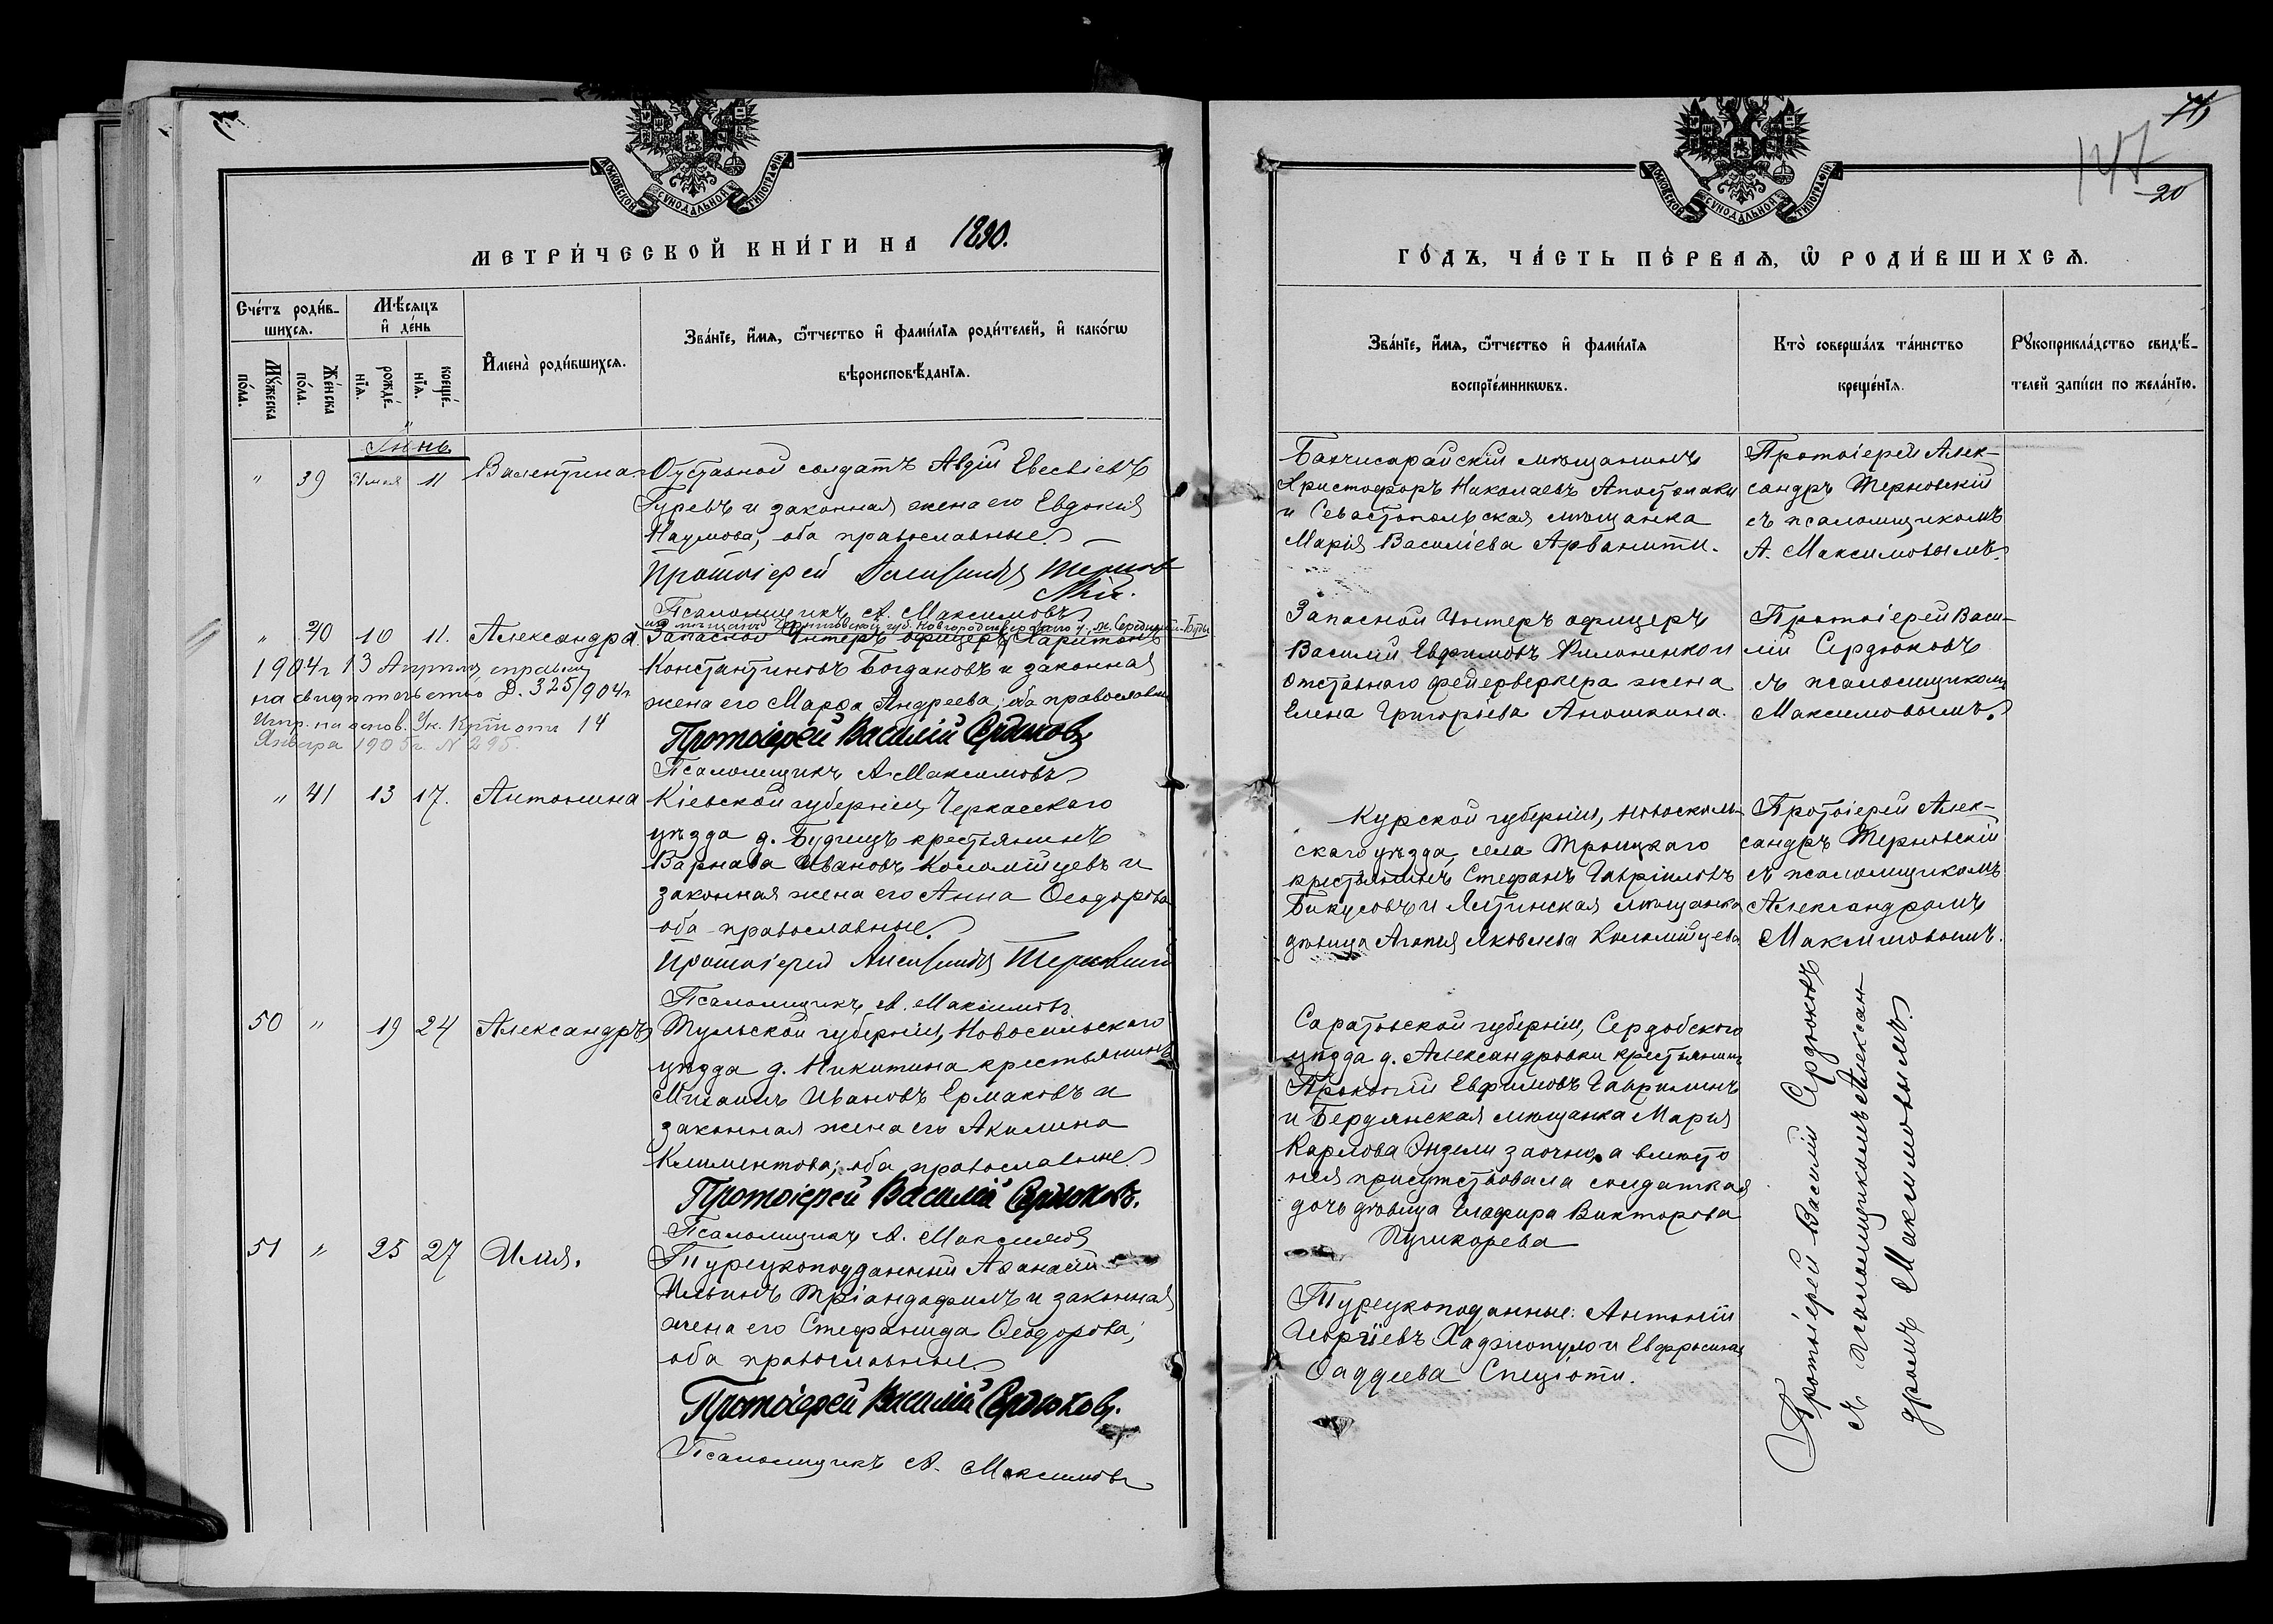 МОСКОВСКОЙ СѴНОДАЛЬНОЙ ТИПОГРАФІИ
МЕТРИ́ЧЕСКОЙ КНИ́ГИ НА 1890.
Сче́тъ роди́в-
шихсѧ.
Мꙋ́жеска
по́ла.
Же́нска
по́ла.
Мѣ́сѧцъ
и҆ де́нь
рожде́-
нїѧ.
креще́-
нїѧ.
И҆мена̀ роди́вшихсѧ.
Зва́нїе, и҆́мѧ, ѻ҆́тчество и҆ фами́лїѧ роди́телей, и҆ како́гѡ
вѣроисповѣ́данїѧ.
Іюнь
" 39 31 мая 11 Валентина
Отставной солдатъ Авдій Евсевіевъ
Гуревъ и законная жена его Евдокия
Наумова, оба православные.
Протоіерей Александръ Тернов-
скій.
Псаломщикъ А. Максимовъ
изъ мѣщанъ Черниговской губ. Новгородсѣверскаго у. м. Середина-Буды
" 40 10 11. Александра
Запасной Унтеръ офицеръ Харитонъ
Константиновъ Богдановъ и законная
жена его Марѳа Андреева, оба православн.
1904 г 13 Апрѣля,
на свидѣтельство Д. 325/904 г
Испр. на основ. Ук. Конст отъ 14
Января 1905 г. № 295.
Протоіерей Василій Сердюковъ
Псаломщикъ А. Максимовъ
" 41 13 17. Антонина
Кіевской губерніи, Черкасскаго
уѣзда д. Будищъ крестьянинъ
Варнава Ивановъ Коломійцевъ и
законная жена его Анна Ѳеодорова
оба православные.
Протоіерей Александръ Терновскій
Псаломщикъ А. Максимовъ
50 " 19 24 Александръ
Тульской губерніи, Новосильскаго
уѣзда д. Никитина крестьянинъ
Михаилъ Ивановъ Ермаковъ и
законная жена его Акилина
Климентова, оба православные.
Протоіерей Василій Сердюковъ.
Псаломщикъ А. Максимовъ
51 " 25 27 Илия.
Турецкоподданный Аѳанасій
Ильинъ Тріандафилъ и законная
жена его Стефанида Ѳеодорова,
оба православные.
Протоіерей Василій Сердюковъ.
Псаломщикъ А. Максимовъ
МОСКОВСКОЙ СѴНОДАЛЬНОЙ ТИПОГРАФІИ
147
20
ГО́ДЪ, ЧА́СТЬ ПЕ́РВАѦ, Ѽ РОДИ́ВШИХСѦ.
Зва́нїе, и҆́мѧ, ѻ҆́тчество и҆ фами́лїѧ
воспрїе́мникѡвъ.
Кто̀ соверша́лъ та́инство
креще́нїѧ.
Рꙋкоприкла́дство свидѣ́-
телей за́писи по жела́нїю.
Бахчисарайскій мѣщанинъ
Христофоръ Николаевъ Апостолаки
и Севастопольская мѣщанка
Марія Василіева Арванити.
Протоіерей Алек-
сандръ Терновскій
съ псаломщикомъ
А. Максимовымъ.
Запасной Унтеръ офицеръ
Василій Евфимовъ Филоненко и
Отставнаго фейерверкера жена
Елена Григоріева Аношкина.
Протоіерей Васи-
лій Сердюковъ
съ псаломщикомъ
Максимовымъ.
Курской губерніи, Новосколь-
скаго уѣзда, села Троицкаго
крестьянинъ Стефанъ Гавріиловъ
Бикусовъ и Ялтинская мѣщанка
дѣвица Агапия Яковлева Коломійцева
Протоіерей Алек-
сандръ Терновскій
съ псаломщикомъ
Александромъ
Максимовымъ.
Саратовской губерніи, Сердобского
уѣзда д. Александровки крестьянинъ
Прокопій Евфимовъ Гаврилинъ
и Бердянская мѣщанка Мария
Карлова Энзели заочно, а вмѣсто
нея присутствовала солдатская
дочь дѣвица Глафира Викторова
Пушкорева
Турецкоподанные: Антоній
Георгіевъ Хаджопуло и Евфросиния
Ѳаддеева Спеціоти.
Протоіерей Василій Сердюковъ
съ псаломщикомъ Алексан-
дромъ Максимовымъ.